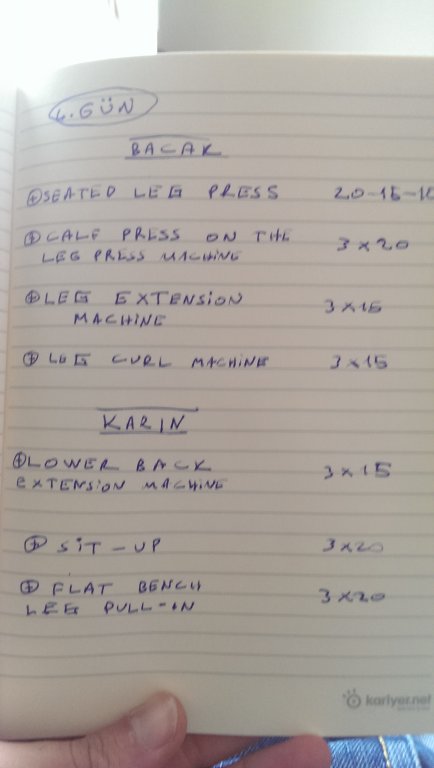 4. GÜN
BACAK
SEATED LEG PRESS 20-15-10
CALF PRESS ON THE
LEG PRESS MACHiNE 3x20
LEG EXTENSiON
MACHiNE 3x15
LEG CURL MACHiNE 3x15
KARIN
LOWER BACK
EXTENSiON MACHiNE 3x15
SiT-UP 3x20
FLAT BENCH
LEG PULL-iN 3x20
kariyer.net